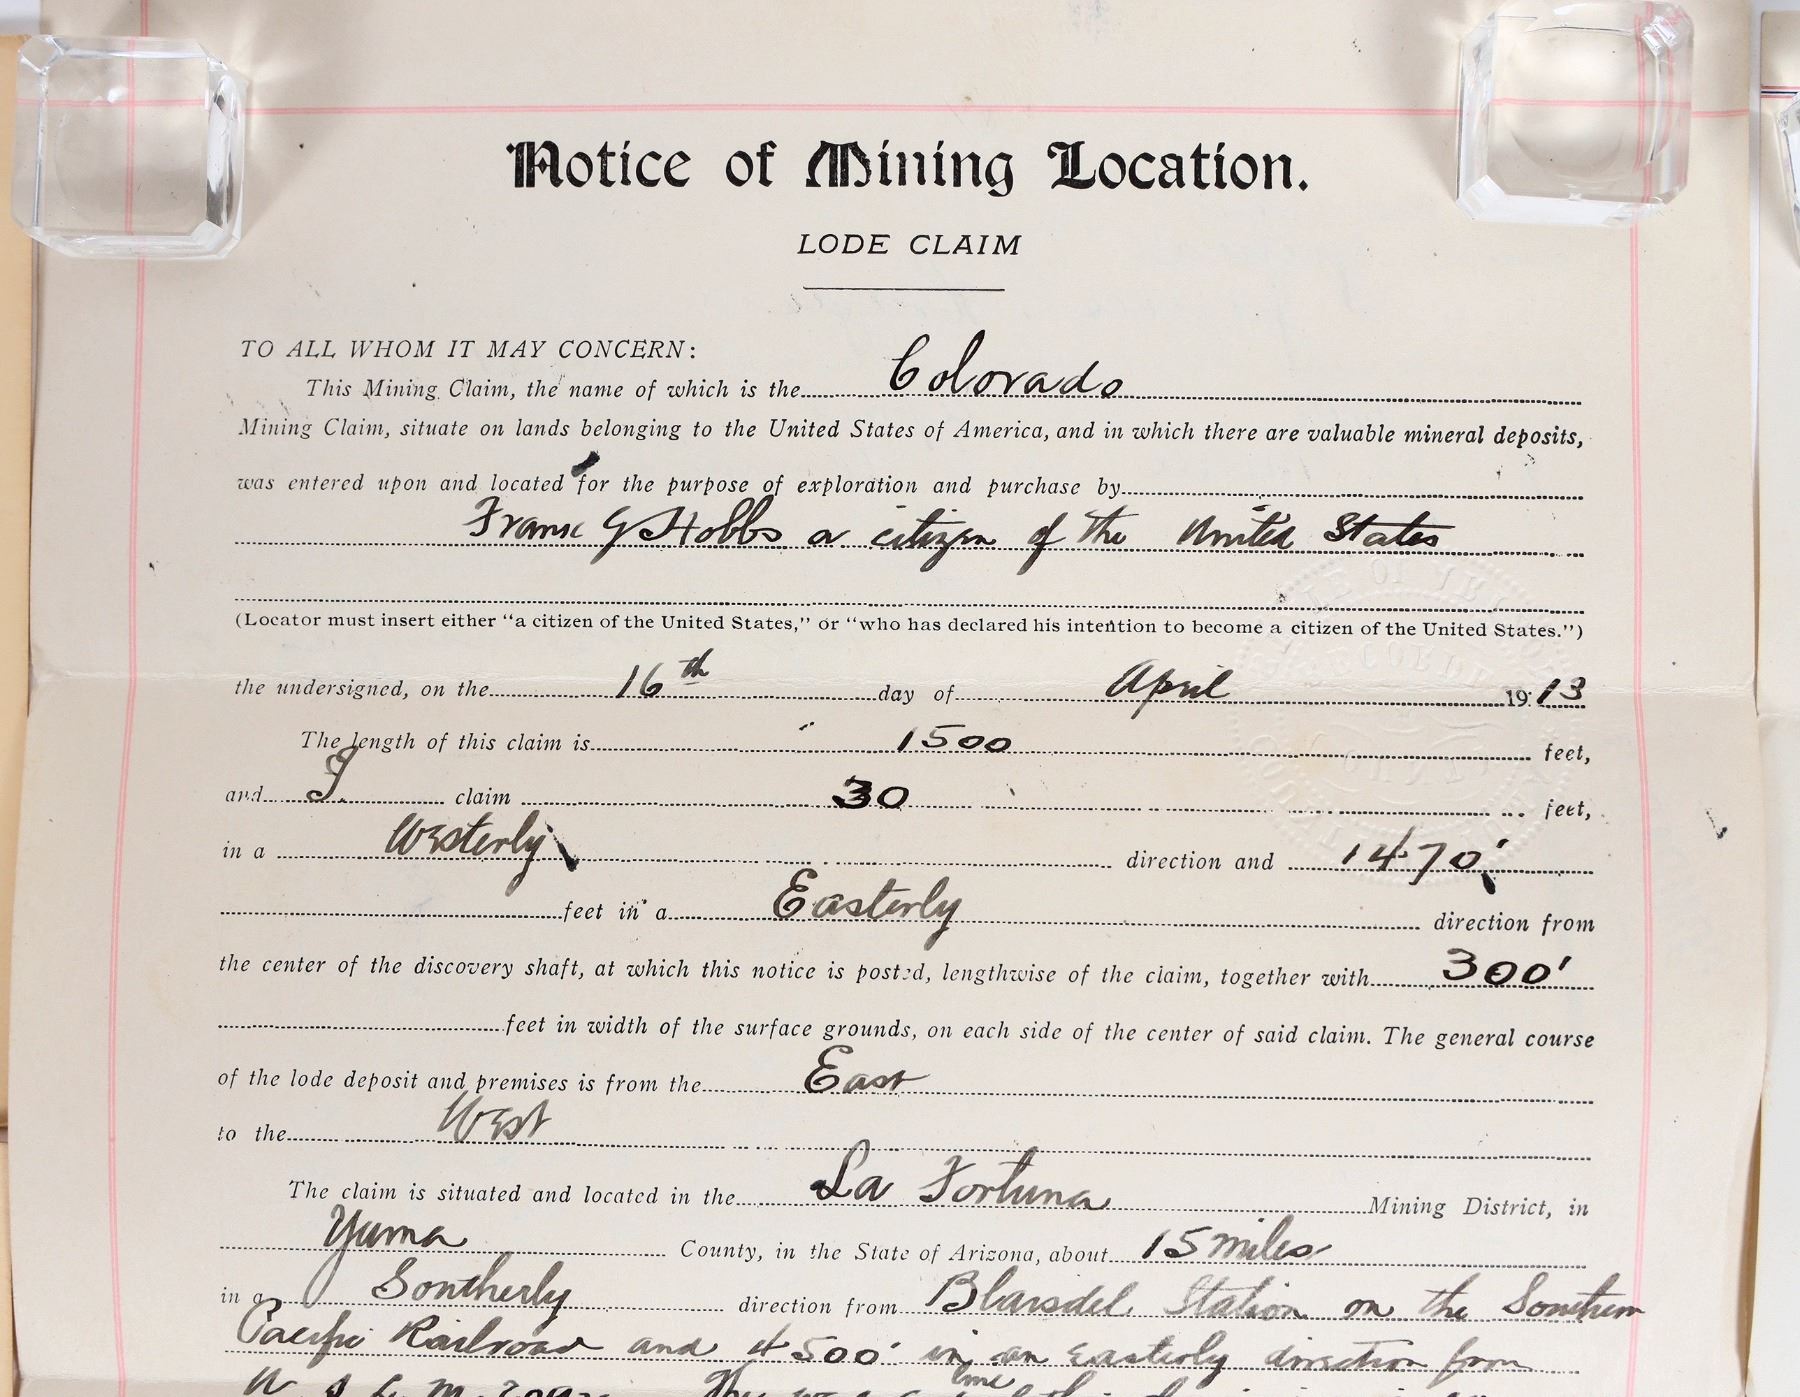 Notice of Mining Location.
LODE CLAIM
TO ALL WHOM IT MAY CONCERN:
This Mining Claim, the name of which is the Colorado
Mining Claim, situate on lands belonging to the United States of America, and in which there are valuable mineral deposits,
was entered upon and located for the purpose of exploration and purchase by
Frank G Hobbs a citizen of the United States
(Locator must insert either "a citizen of the United States," or "who has declared his intention to become a citizen of the United States.")
the undersigned, on the 16th day of April 1913
The length of this claim is 1500 feet,
and I claim 30 feet,
in a Westerly direction and 1470'
feet in a Easterly direction from
the center of the discovery shaft, at which this notice is posted, lengthwise of the claim, together with 300'
feet in width of the surface grounds, on each side of the center of said claim. The general course
of the lode deposit and premises is from the East
to the West
The claim is situated and located in the La Fortuna Mining District, in
Yuma County, in the State of Arizona, about 15 miles
in a Southerly direction from Blaisdel Station on the Southern
Pacific Railroad and 4500' in an Easterly direction from